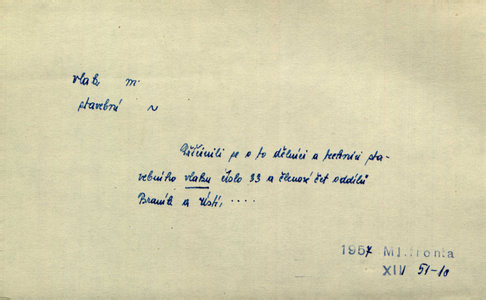 vlak m.
stavební ~
Přičinili se o to dělníci a technici sta-
vebního vlaku číslo 33 a členové čet oddílů
Braník a Ústí, ....
1957 Ml. fronta
XIV 51-10